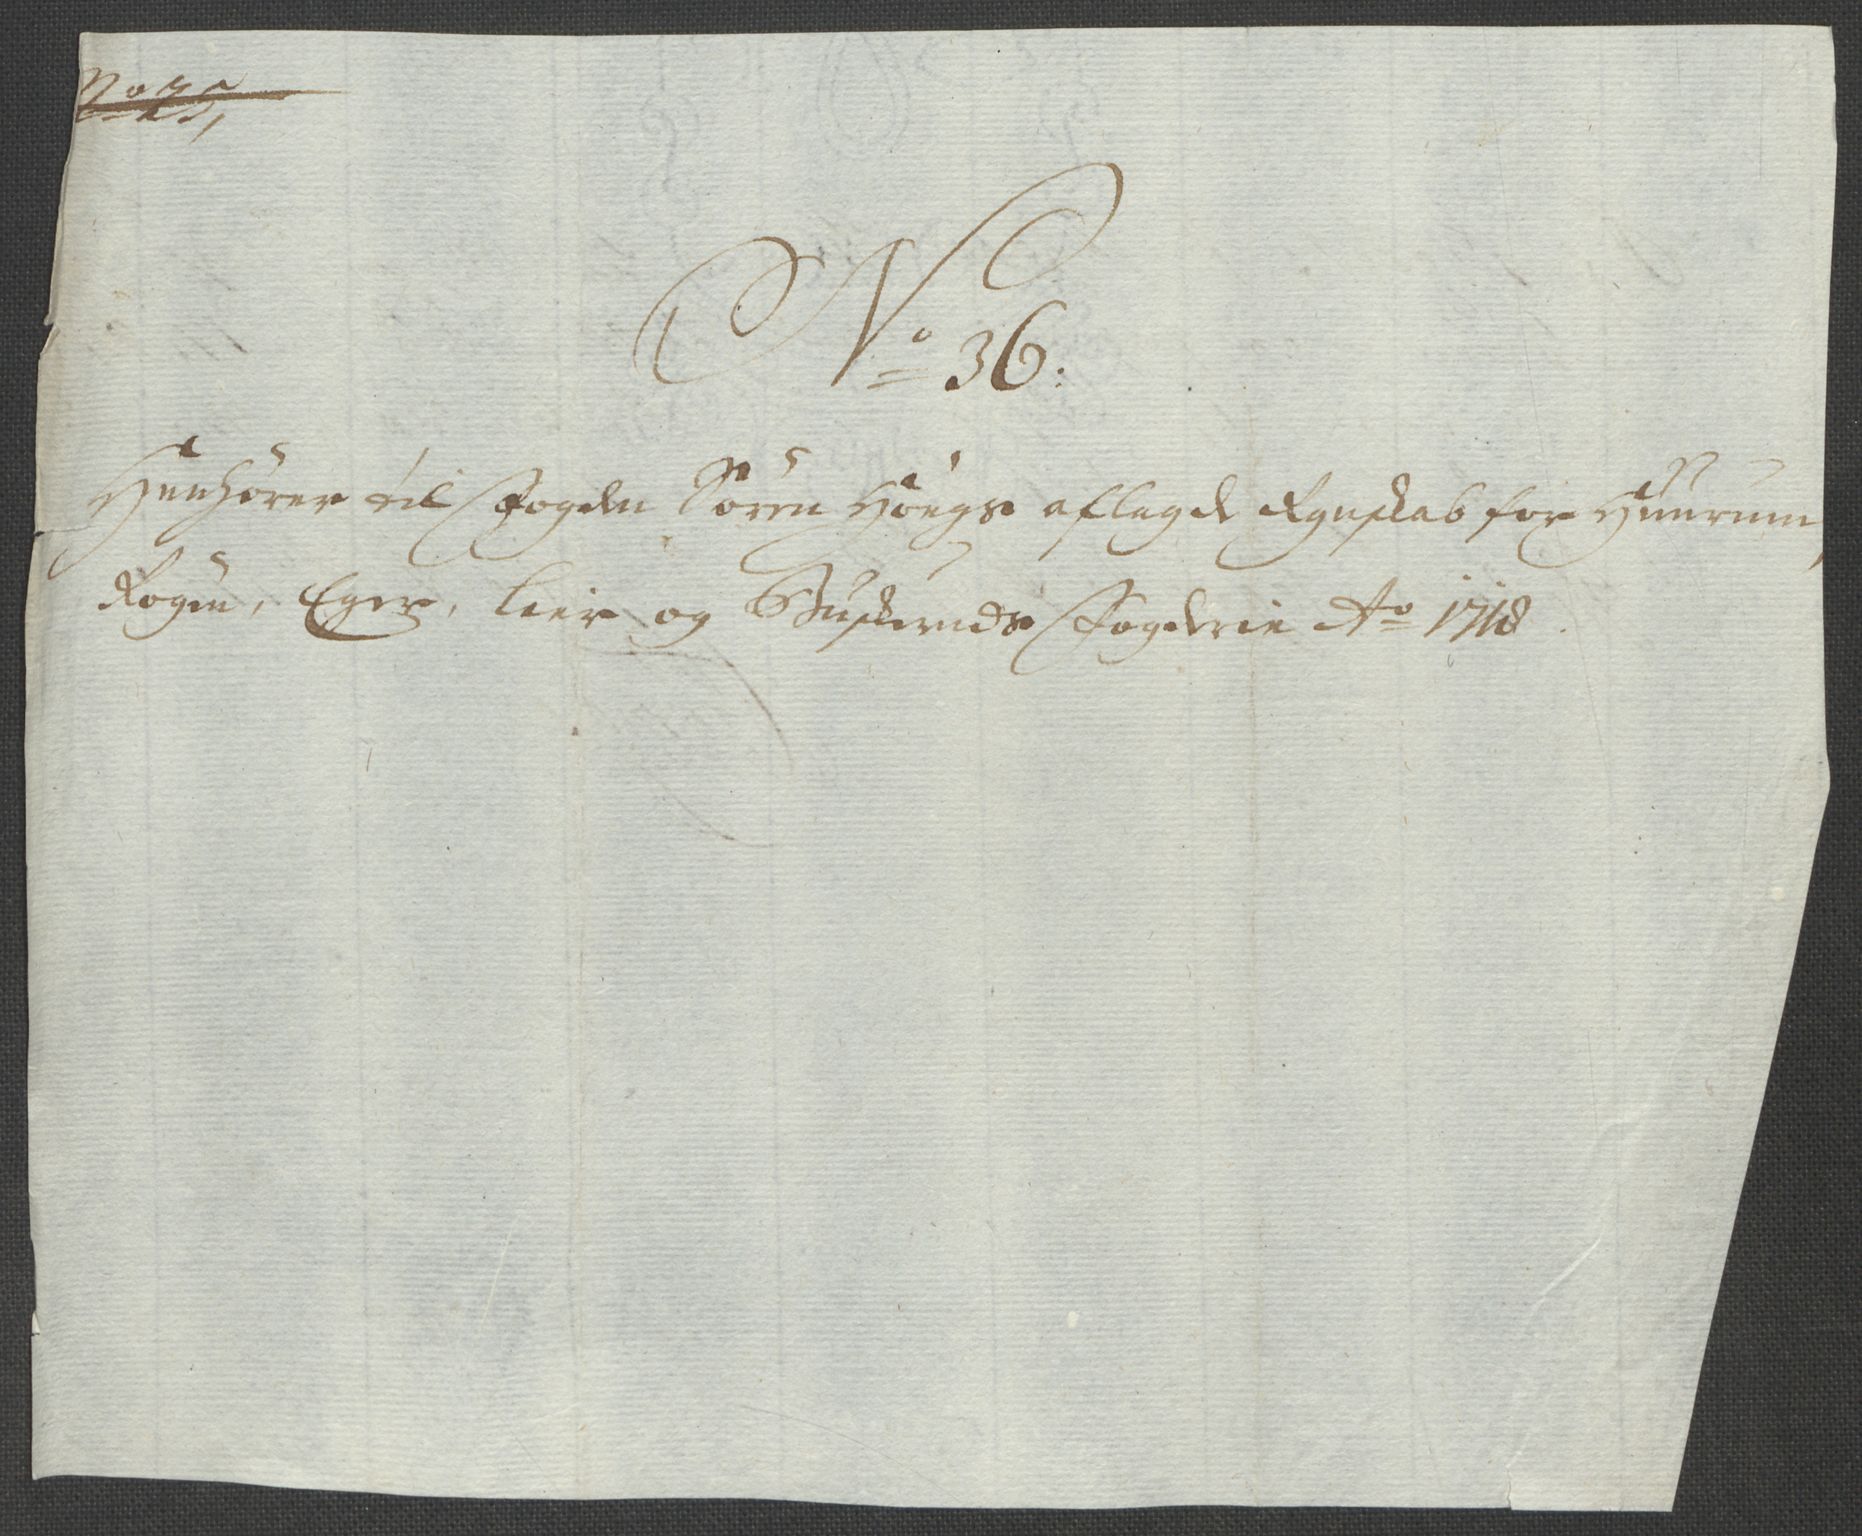 No 25,
No 36:
Henhörer til Fogden Sören Höegs aflagde Regnskab for Huurum,
Rögen, Eger, Lier og Buskeruds Fogderie Ao 1718.